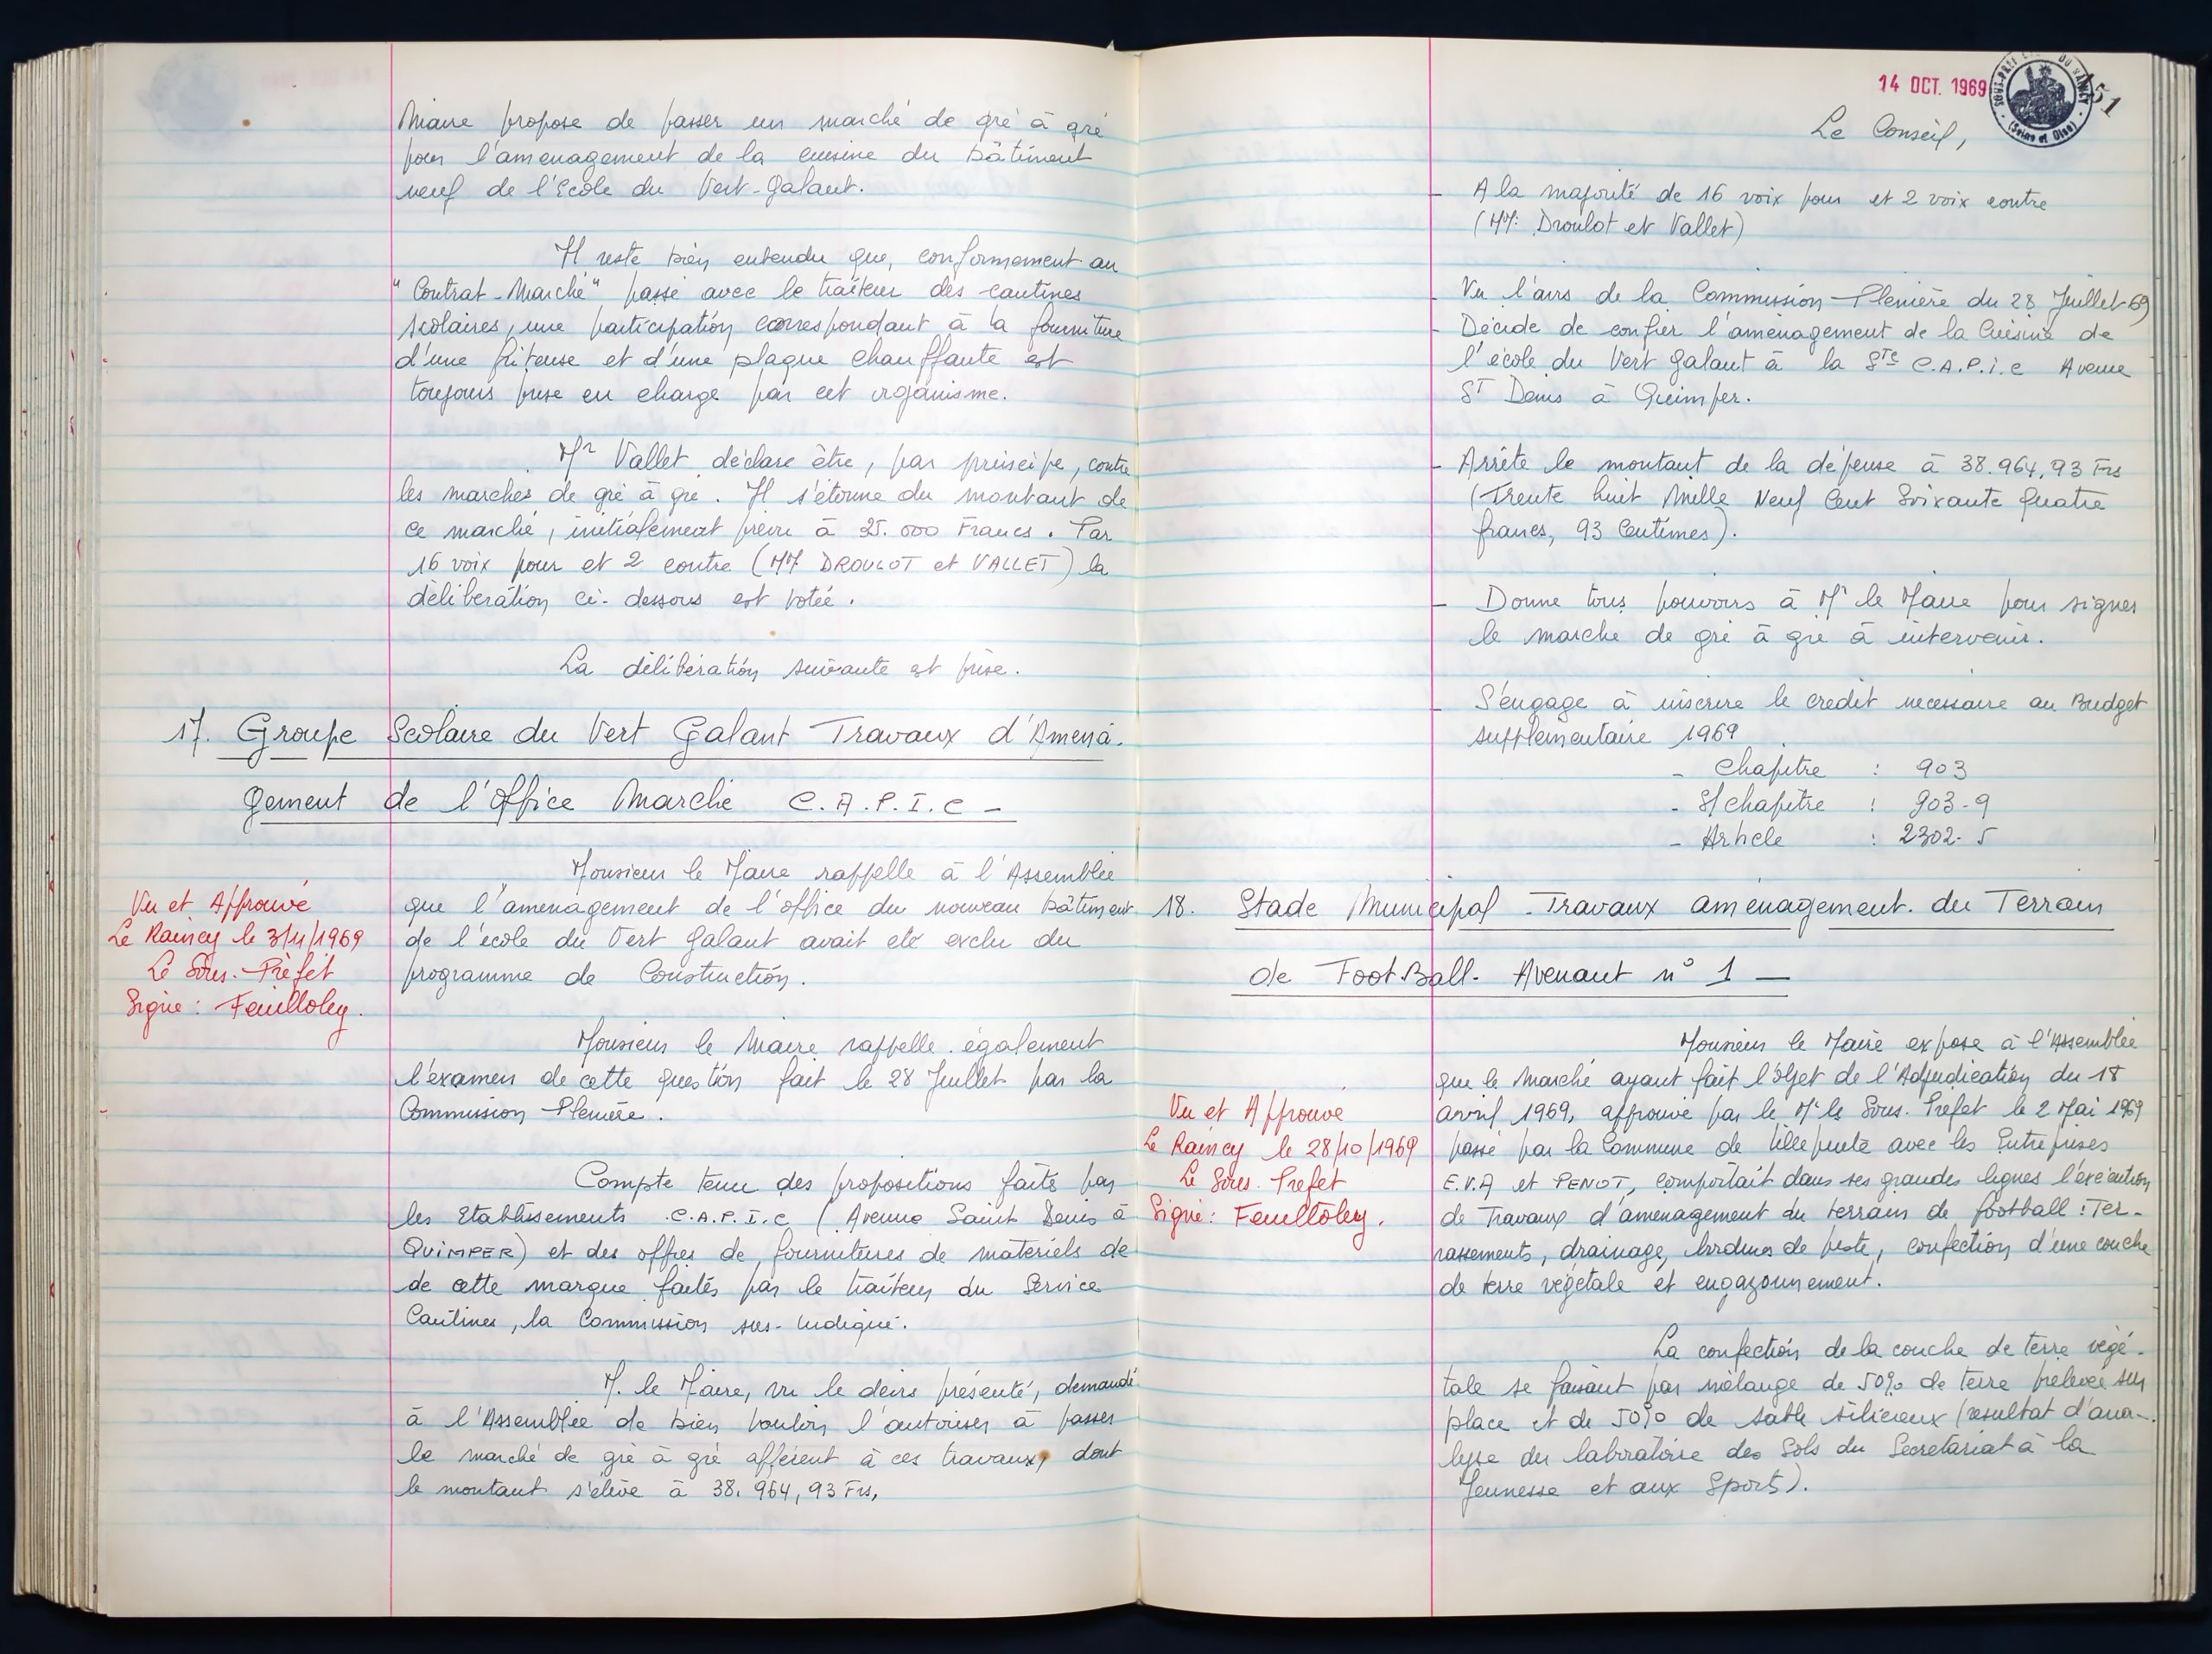 Maire propose de passer un marché de gré à gré
pour l'aménagement de la cuisine du bâtiment
neuf de l'Ecole du Vert-Galant.
Il reste bien entendu que, conformement au
"Contrat-Marché" passé avec le traiteur des cantines
scolaires, une participation correspondant à la fourniture
d'une friteuse et d'une plaque chauffante est
toujours prise en charge par cet organisme.
Mr Vallet déclare être, par principe, contre
les marchés de gré à gré. Il s'étonne du montant de
ce marché, initialement prévu à 25.000 Francs. Par
16 voix pour et 2 contre (MM DROULOT et VALLET) la
délibération ci-dessous est votée.
La délibération suivante est prise.
17. Groupe Scolaire du Vert Galant Travaux d'Aména-
gement de l'Office Marché C.A.P.I.C -
Monsieur le Maire rappelle à l'Assemblée
que l'amenagement de l'office du nouveau bâtiment
de l'école du Vert Galant avait été exclu du
programme de Construction.
Vu et Approuvé
Le Raincy le 3/11/1969
Le Sous-Préfet
Signé : Feuilloley.
Monsieur le Maire rappelle également
l'examen de cette question fait le 28 Juillet par la
Commission Plenière.
Compte tenu des propositions faites par
les Etablissements C.A.P.I.C (Avenue Saint Denis à
QUIMPER) et des offres de fournitures de matériels de
de cette marque faites par le traiteur du Service
Cantines, la Commission sus-indiqué.
M. le Maire, vu le devis présenté, demande
à l'Assemblée de bien vouloir l'autoriser à passer
le marché de gré à gré afférent à ces travaux, dont
le montant s'élève à 38.964,93 Frs,
14 OCT. 1969
51
(Seine et Oise)
Le Conseil,
- A la majorité de 16 voix pour et 2 voix contre
(MM. Droulot et Vallet)
- Vu l'avis de la Commission-Plenière du 28 Juillet 69
- Décide de confier l'aménagement de la Cuisine de
l'école du Vert Galant à la Sté C.A.P.i.c Avenue
ST Denis à Quimper.
- Arrête le montant de la dépense à 38.964,93 Frs
(Trente huit Mille Neuf Cent Soixante Quatre
francs, 93 Centimes).
- Donne tous pouvoirs à Mr le Maire pour signer
le marché de gré à gré à intervenir.
- S'engage à inscrire le credit necessaire au Budget
supplementaire 1969
- Chapitre : 903
- S/chapitre : 903-9
- Article : 2302-5
18. Stade Municipal - Travaux aménagement du Terrain
de FootBall. Avenant n° 1 —
Monsieur le Maire expose à l'Assemblée
que le Marché ayant fait l'objet de l'Adjudication du 18
avril 1969, approuvé par le Mr le Sous. Prefet le 2 Mai 1969
passé par la Commune de Villepinte avec les Entreprises
E.V.A et PENOT, comportait dans ses grandes lignes l'exécution
de Travaux d'aménagement du terrain de football : Ter-
rassements, drainage, bordures de piste, confection d'une couche
de terre végétale et engazonnement.
Vu et Approuvé
Le Raincy le 28/10/1969
Le Sous. Prefet
Signé : Feuilloley.
La confection de la couche de terre végé-
tale se faisant par mélange de 50% de terre prélevée sur
place et de 50% de sable siliceux (résultat d'ana-
lyse du laboratoire des Sols du Secretariat à la
Jeunesse et aux Sports).